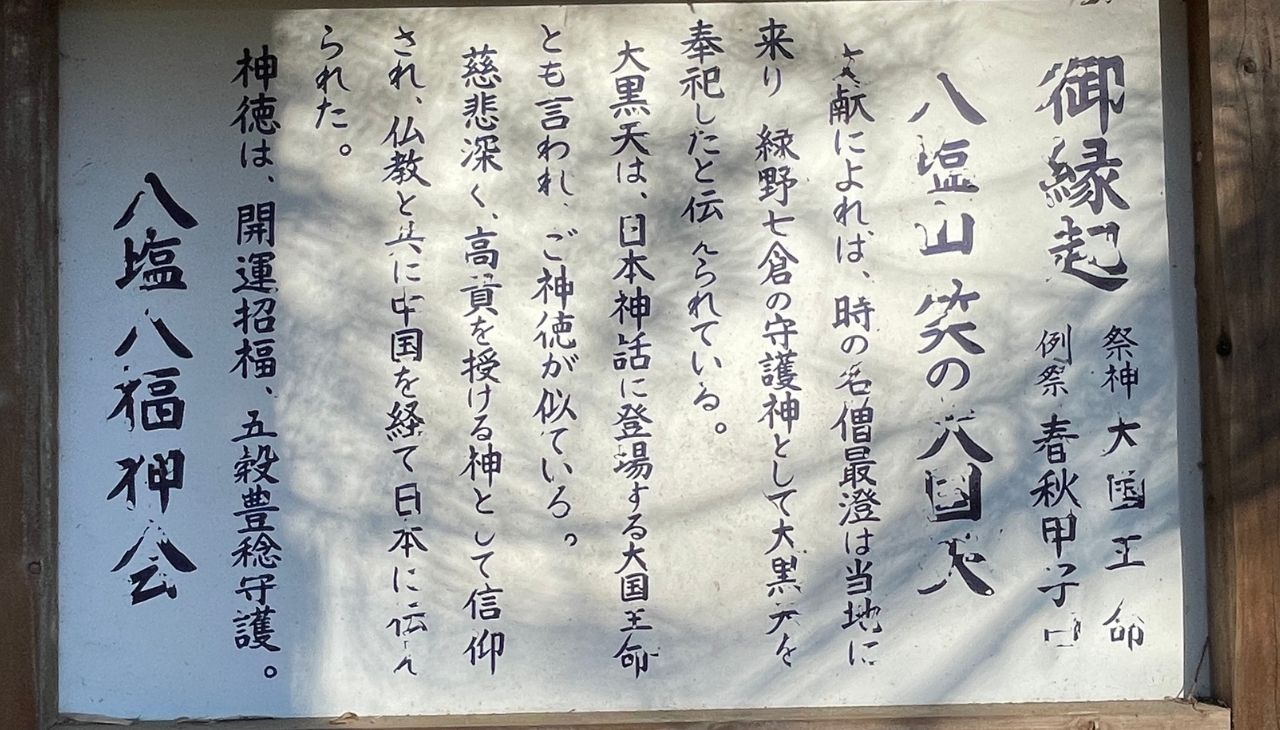 御縁起
祭神 大国主命
例祭 春秋甲子日
八塩山 笑の大国天
文献によれば、時の名僧最澄は当地に
来り 緑野七倉の守護神として大黒天を
奉祀したと伝えられている。
大黒天は、日本神話に登場する大国主命
とも言われ、ご神徳が似ている。
慈悲深く、高貴を授ける神として信仰
され、仏教と共に中国を経て日本に伝え
られた。
神徳は、開運招福、五穀豊稔守護。
八塩八福神会